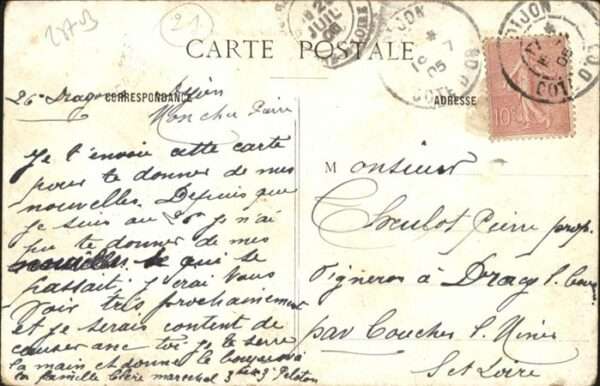 21
JUIL
DIJON
10 7
05
COTE D'OR
DIJON
05
COTE D'O
CARTE POSTALE
10
CORRESPONDANCE
ADRESSE
26e Dragons Dijon
Mon cher Pierre
Je t'envoie cette carte
pour te donner de mes
nouvelles. Depuis que
je suis au 26 je n'ai
pu te donner de mes
nouvelles ce qui se
passait. J'irai vous
voir très prochainement
et je serais content de
causer avec toi je te serre
la main et donne le bonjour à
ta famille marechal 3e 3e Peloton
Monsieur
Pierre prop.
Vigneron à Dracy l. Couches
par Couches l. Mines
S et Loire